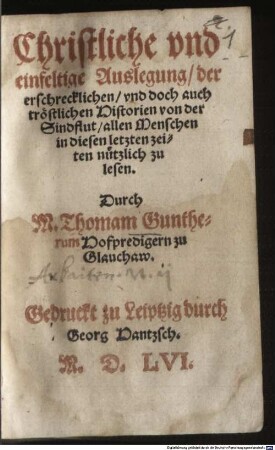 Christliche vnd
einfeltige Auslegung/ der
erschrecklichen/ vnd doch auch
tröstlichen Historien von der
Sindflut/ allen Menschen
in diesen letzten zei-
ten nützlich zu
lesen.
Durch
M. Thomam Gunthe-
rum Hofpredigern zu
Glauchaw.
Gedruckt zu Leiptzig durch
Georg Hantzsch.
M. D. LVI.